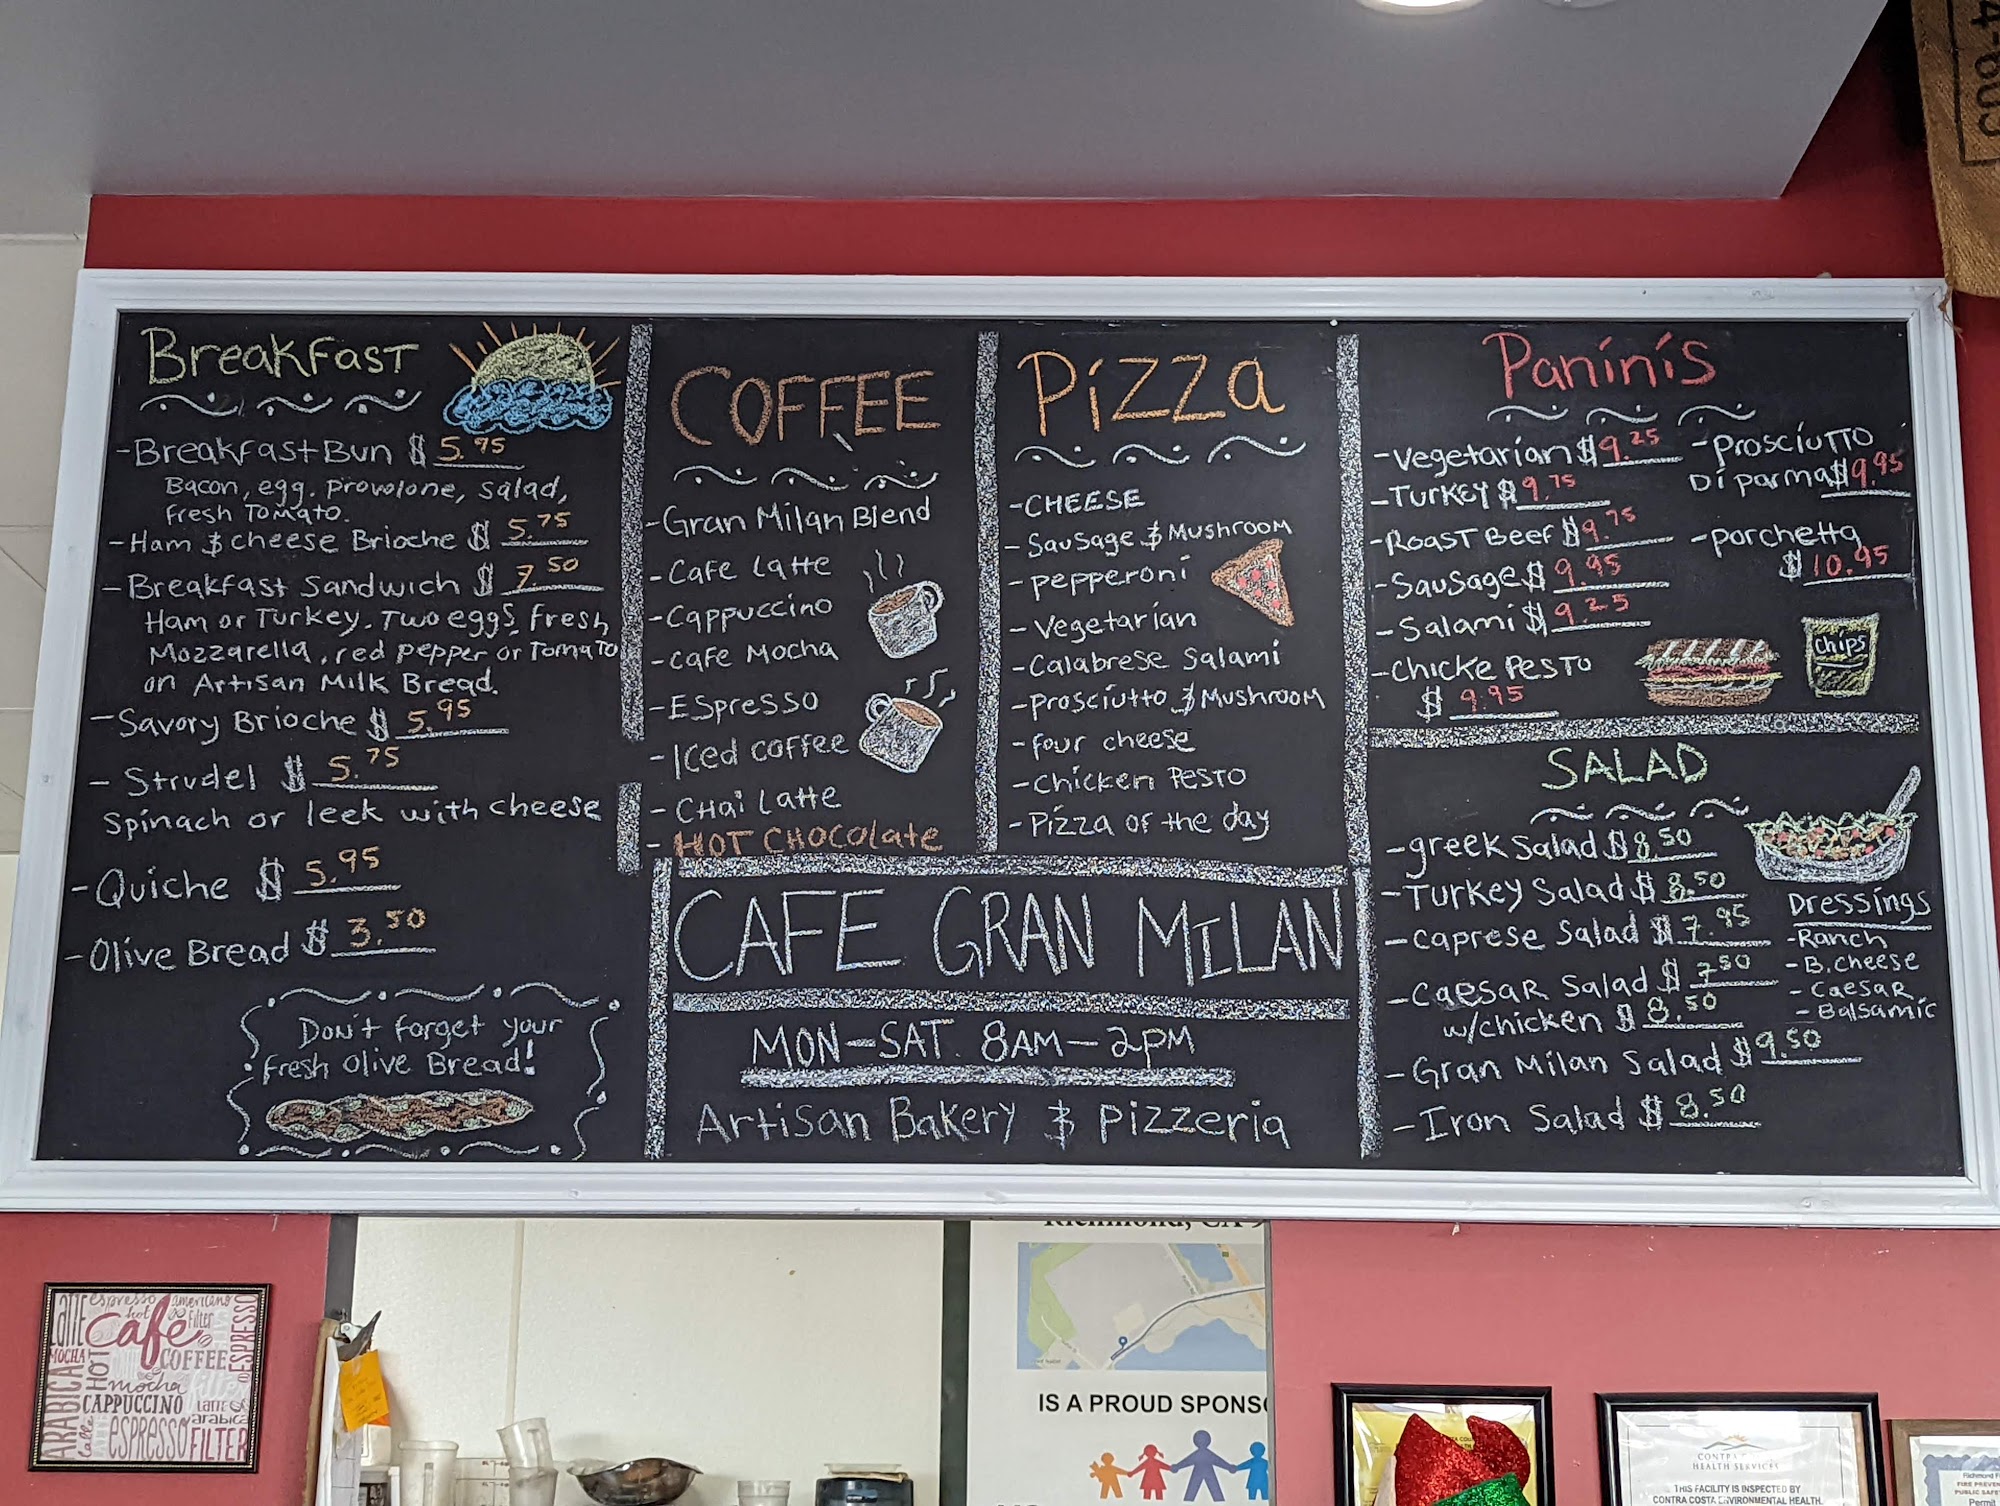 Breakfast
-Breakfast Bun $ 5.95
Bacon, egg. provolone, salad,
fresh Tomato.
-Ham & cheese Brioche $ 5.75
-Breakfast Sandwich $ 7.50
Ham or Turkey. Two eggs. Fresh
Mozzarella, red pepper or Tomato
on Artisan Milk Bread.
-Savory Brioche $ 5.95
-Strudel $ 5.75
Spinach or leek with cheese
-Quiche $ 5.95
-Olive Bread $ 3.50
Don't forget your
fresh Olive Bread!
COFFEE
-Gran Milan Blend
-Cafe Latte
-Cappuccino
-Cafe Mocha
-Espresso
-Iced coffee
-CHai Latte
-HOT CHOCOLATE
Pizza
-CHEESE
-Sausage & Mushroom
-pepperoni
-Vegetarian
-Calabrese Salami
-Prosciutto & Mushroom
-four cheese
-Chicken Pesto
-Pizza of the day
CAFE GRAN MILAN
MON-SAT. 8AM-2PM
Artisan Bakery & Pizzeria
Paninis
-Vegetarian $9.25
-Turkey $9.75
-Roast Beef $9.75
-Sausage $9.95
-Salami $9.25
-Chicke Pesto
$ 9.95
-Prosciutto
Di parma $9.95
-porchetta
$10.95
Chips
SALAD
-greek Salad $8.50
-Turkey Salad $8.50
-Caprese Salad $7.95
-Caesar Salad $7.50
w/chicken $8.50
-Gran Milan Salad $9.50
-Iron Salad $8.50
Dressings
-Ranch
-B.cheese
-Caesar
-Balsamic
IS A PROUD SPONSO
Latte
espresso
hot
americano
filter
café
COFFEE
ESPRESSO
MOCHA
HOT
mocha
ARABICA
CAPPUCCINO
latte
arabica
espresso
FILTER
HEALTH SERVICES
THIS FACILITY IS INSPECTED BY
CONTRA COSTA ENVIRONMENTAL HEALTH